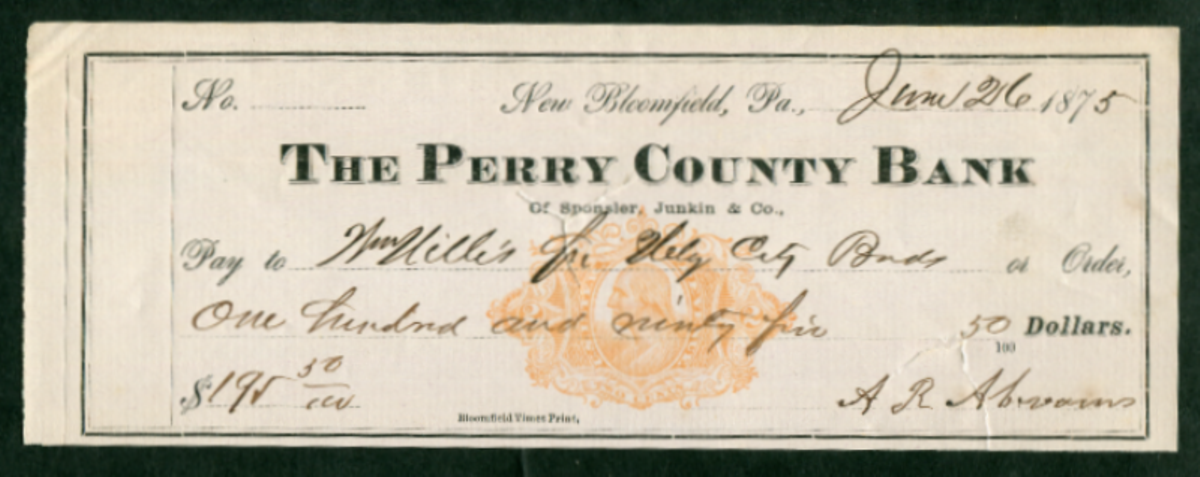 No. New Bloomfield, Pa., June 26 1875
THE PERRY COUNTY BANK
Of Sponsler, Junkin & Co.,
Pay to Wm Willis for City Bonds or Order,
One hundred and ninty five 50/100 Dollars.
$195 50/100
Bloomfield Times Print,
A R Abrams